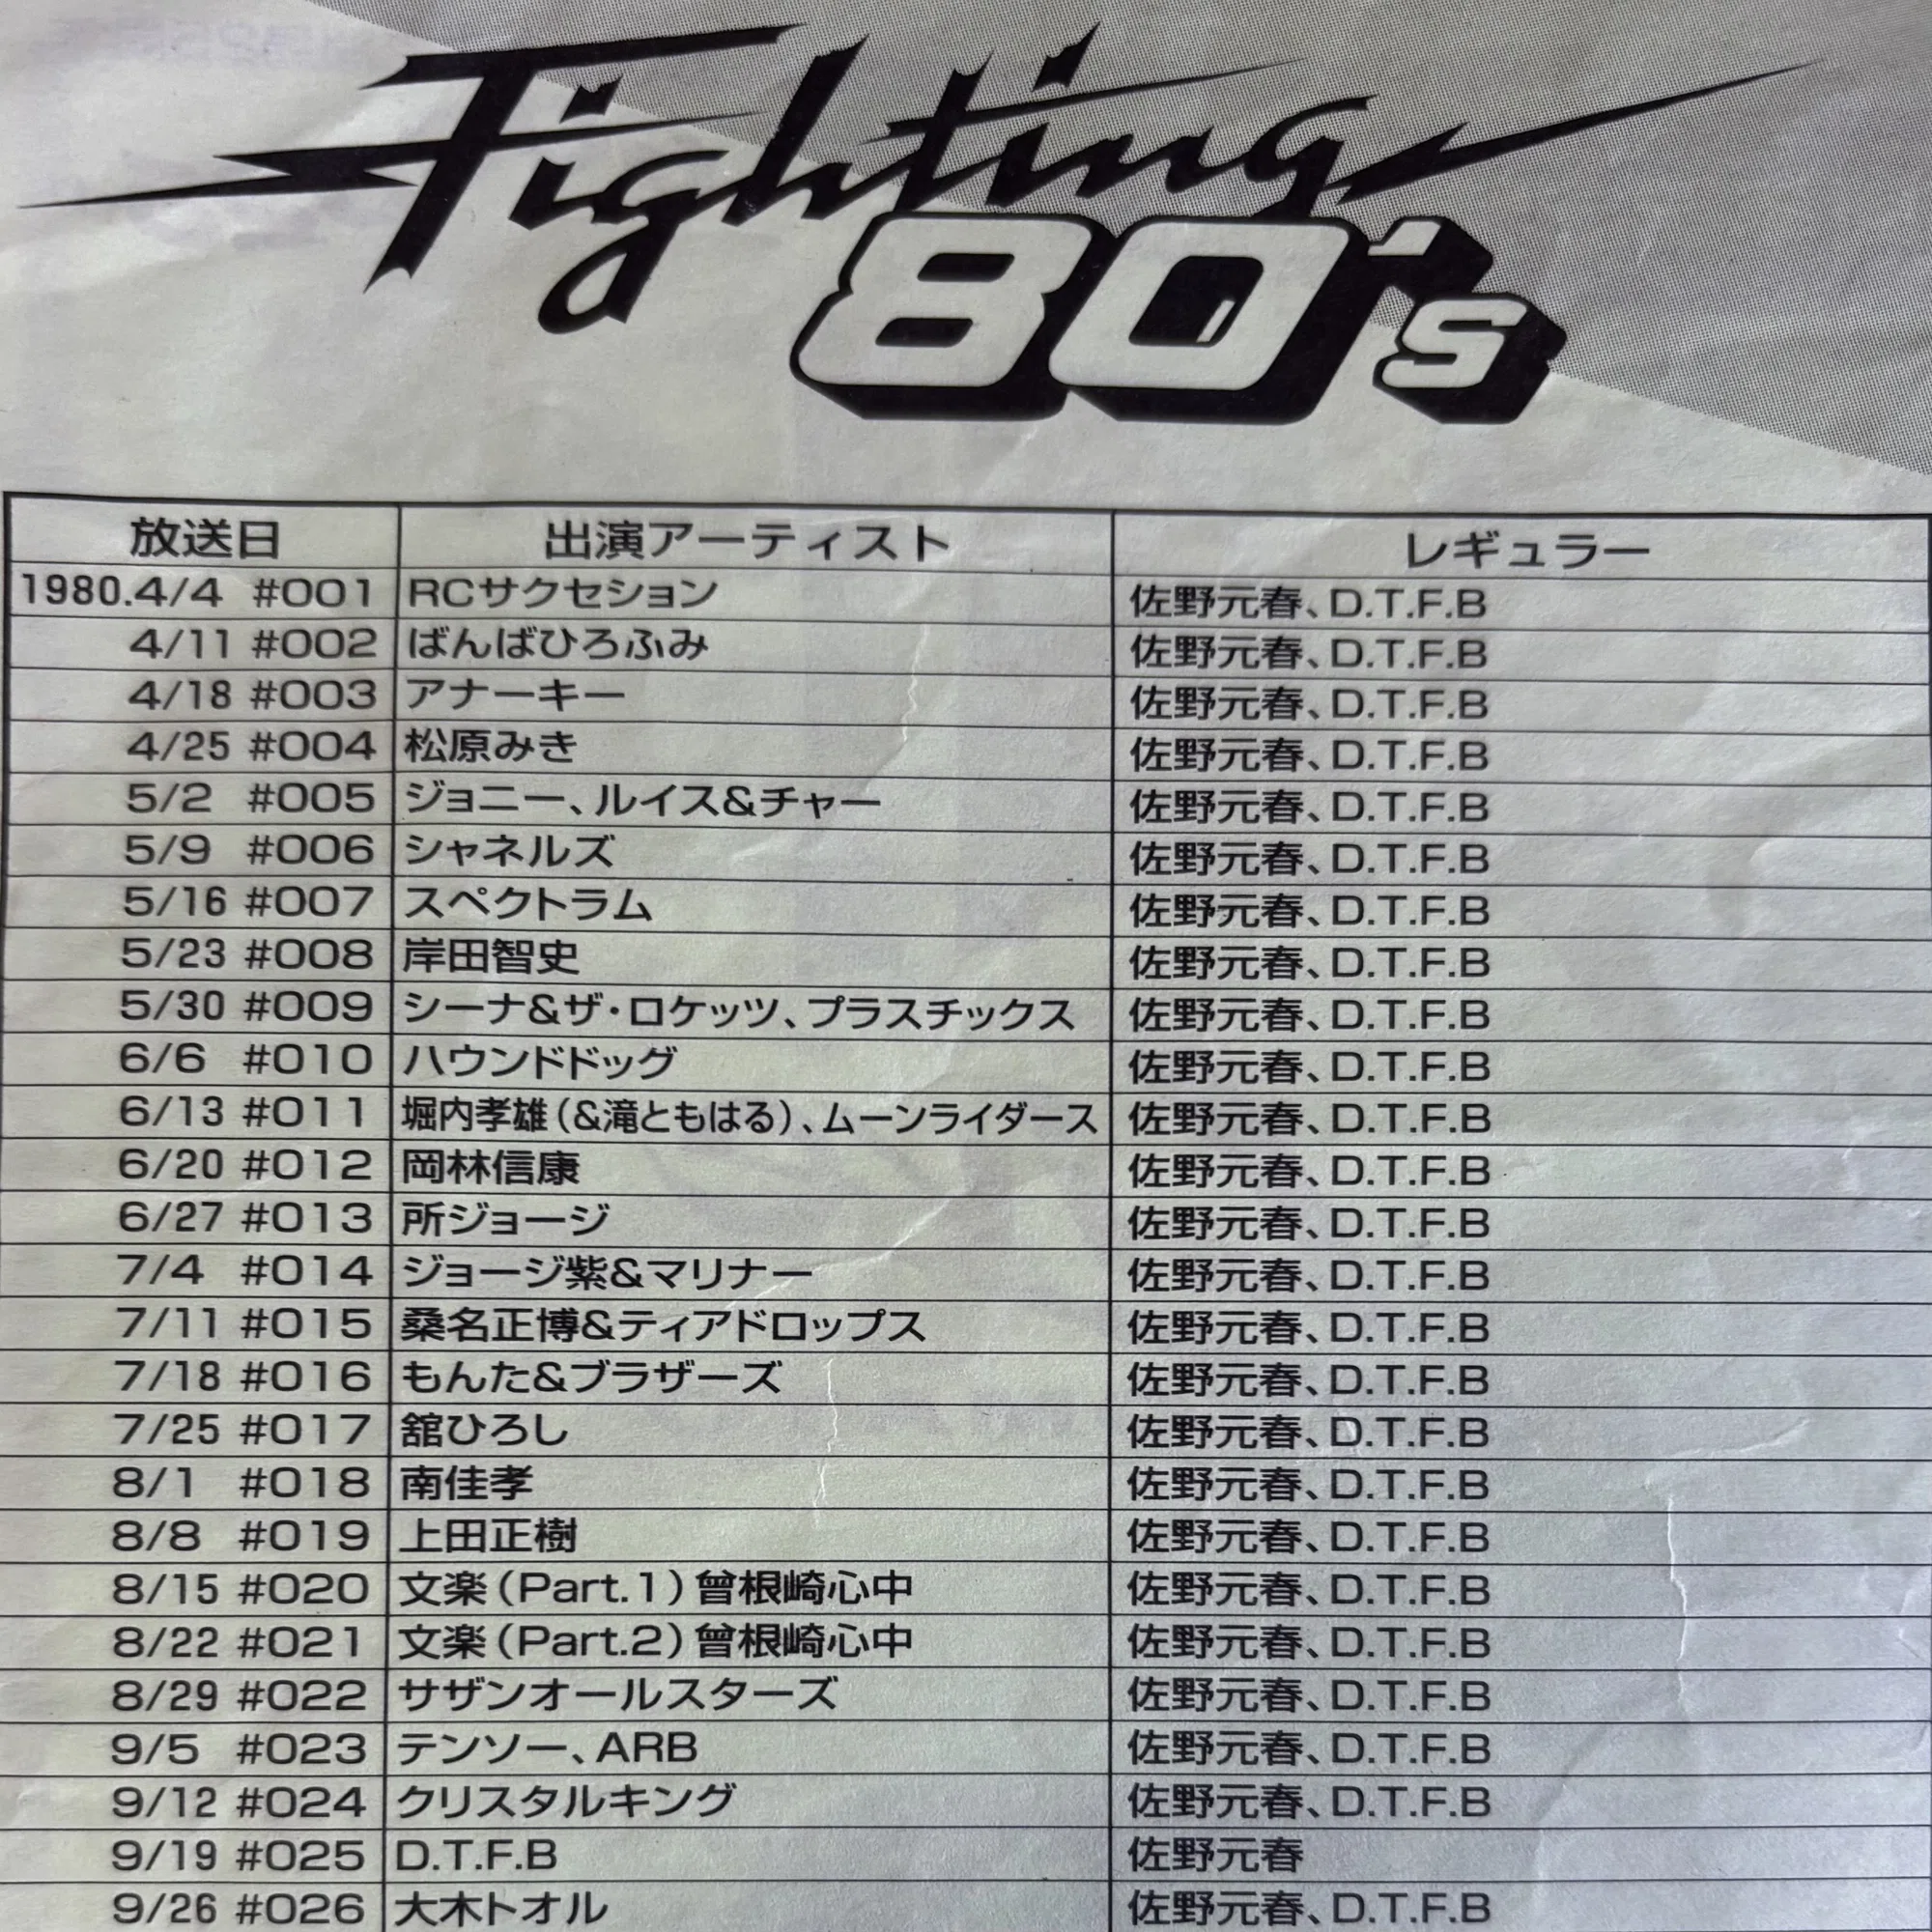 Fighting
80's
放送日 出演アーティスト レギュラー
1980.4/4 #001 RCサクセション 佐野元春、D.T.F.B
4/11 #002 ばんばひろふみ 佐野元春、D.T.F.B
4/18 #003 アナーキー 佐野元春、D.T.F.B
4/25 #004 松原みき 佐野元春、D.T.F.B
5/2 #005 ジョニー、ルイス&チャー 佐野元春、D.T.F.B
5/9 #006 シャネルズ 佐野元春、D.T.F.B
5/16 #007 スペクトラム 佐野元春、D.T.F.B
5/23 #008 岸田智史 佐野元春、D.T.F.B
5/30 #009 シーナ&ザ・ロケッツ、プラスチックス 佐野元春、D.T.F.B
6/6 #010 ハウンドドッグ 佐野元春、D.T.F.B
6/13 #011 堀内孝雄(&滝ともはる)、ムーンライダース 佐野元春、D.T.F.B
6/20 #012 岡林信康 佐野元春、D.T.F.B
6/27 #013 所ジョージ 佐野元春、D.T.F.B
7/4 #014 ジョージ紫&マリナー 佐野元春、D.T.F.B
7/11 #015 桑名正博&ティアドロップス 佐野元春、D.T.F.B
7/18 #016 もんた&ブラザーズ 佐野元春、D.T.F.B
7/25 #017 舘ひろし 佐野元春、D.T.F.B
8/1 #018 南佳孝 佐野元春、D.T.F.B
8/8 #019 上田正樹 佐野元春、D.T.F.B
8/15 #020 文楽(Part.1)曾根崎心中 佐野元春、D.T.F.B
8/22 #021 文楽(Part.2)曾根崎心中 佐野元春、D.T.F.B
8/29 #022 サザンオールスターズ 佐野元春、D.T.F.B
9/5 #023 テンソー、ARB 佐野元春、D.T.F.B
9/12 #024 クリスタルキング 佐野元春、D.T.F.B
9/19 #025 D.T.F.B 佐野元春
9/26 #026 大木トオル 佐野元春、D.T.F.B